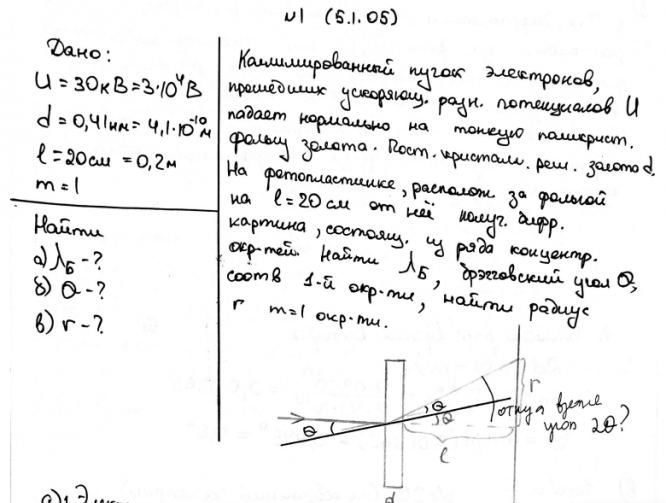 №1 (5.1.05)
Дано:
U = 30кВ = 3·10⁴В
d = 0,41нм = 4,1·10⁻¹⁰м
l = 20см = 0,2м
m = 1
Найти
а) λ_Б - ?
б) θ - ?
в) r - ?
Коллимированный пучок электронов,
прошедших ускоряющ. разн. потенциалов U
падает нормально на тонкую поликрист.
фольгу золота. Пост. кристалл. реш. золота d.
На фотопластинке, располож за фольгой
на l = 20см от неё получ. дифр.
картина, состоящ. из ряда концентр.
окр-тей. Найти λ_Б, брэгговский угол θ,
соотв 1-й окр-ти, найти радиус
r m=1 окр-ти.
θ
θ
θ
r
l
d
откуда взяли
угол 2θ?